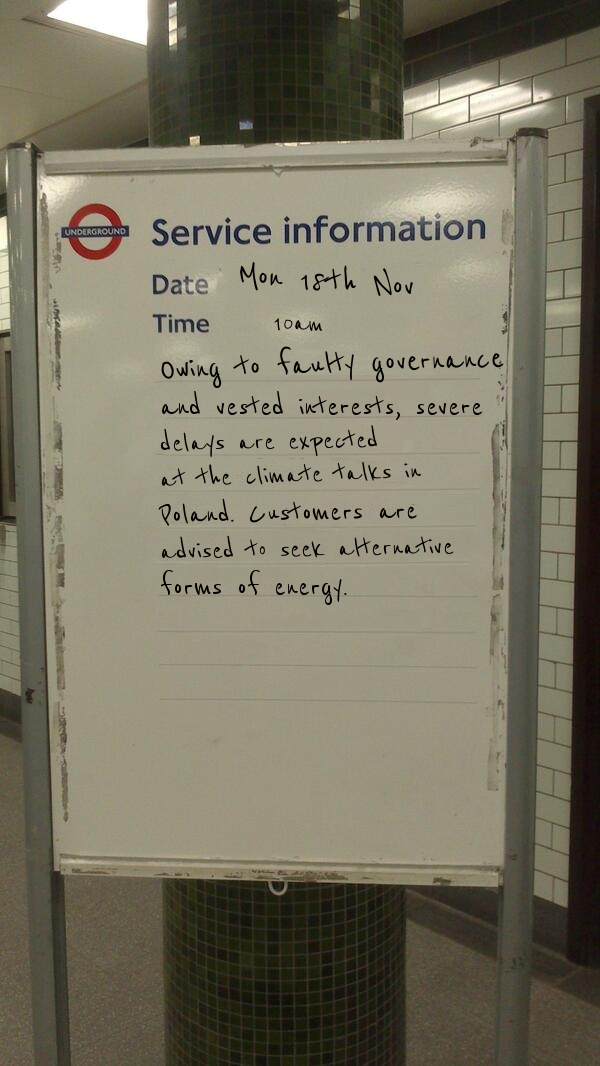 UNDERGROUND
Service information
Date Mon 18th Nov
Time 10am
Owing to faulty governance
and vested interests, severe
delays are expected
at the climate talks in
Poland. Customers are
advised to seek alternative
forms of energy.